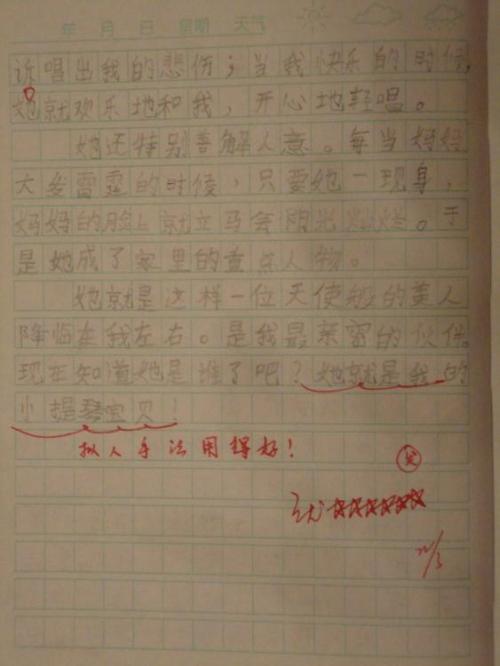 年 月 日 星期 天气
诉唱出我的悲伤；当我快乐的时候，
她就欢乐地和我，开心地轻唱。
她还特别善解人意。每当妈妈
大发雷霆的时候，只要她一现身，
妈妈的脸上就立马会阳光灿烂。于
是她成了家里的重点人物。
她就是这样一位天使般的美人
降临在我左右。是我最亲密的伙伴。
现在知道她是谁了吧？她就是我的
小提琴宝贝！
拟人手法用得好！
优☆☆☆☆☆☆